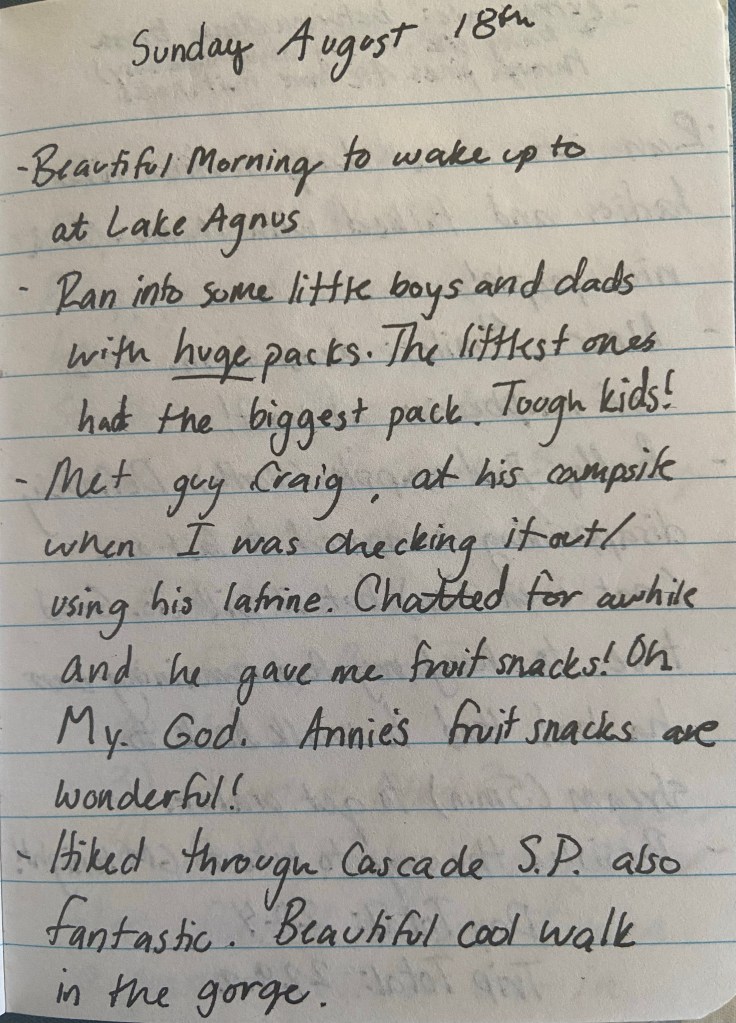 Sunday August 18th
- Beautiful Morning to wake up to
at Lake Agnus
- Ran into some little boys and dads
with huge packs. The littlest ones
had the biggest pack. Tough kids!
- Met guy Craig, at his campsite
when I was checking it out/
using his latrine. Chatted for awhile
and he gave me fruit snacks! Oh
My. God. Annie's fruit snacks are
wonderful!
- Hiked through Cascade S.P. also
fantastic. Beautiful cool walk
in the gorge.